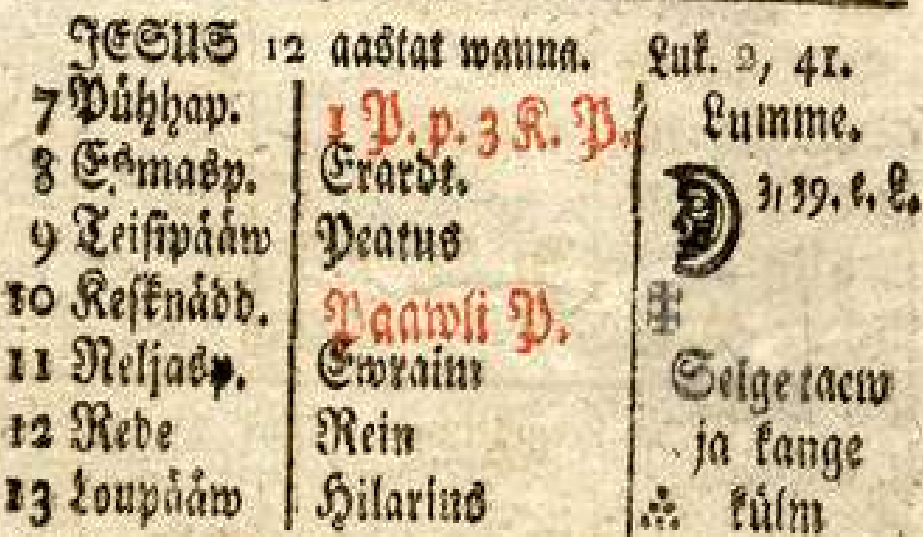 JESUS 12 aastat wanna. Luk. 2, 41.
7 Pühhap. 1 P. p. 3 K. P. Lumme.
8 Esmasp. Erardt. 3, 39. e. L.
9 Teisipääw Peatus
10 Kesknädd. Paawli P.
11 Neljasp. Ewraim Selge taew
12 Rede Rein ja kange
13 Loupääw Hilarius külm